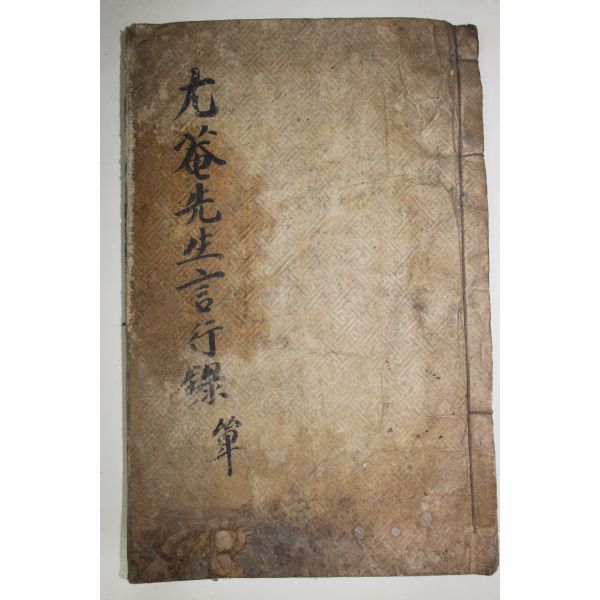 尤菴先生言行錄 單